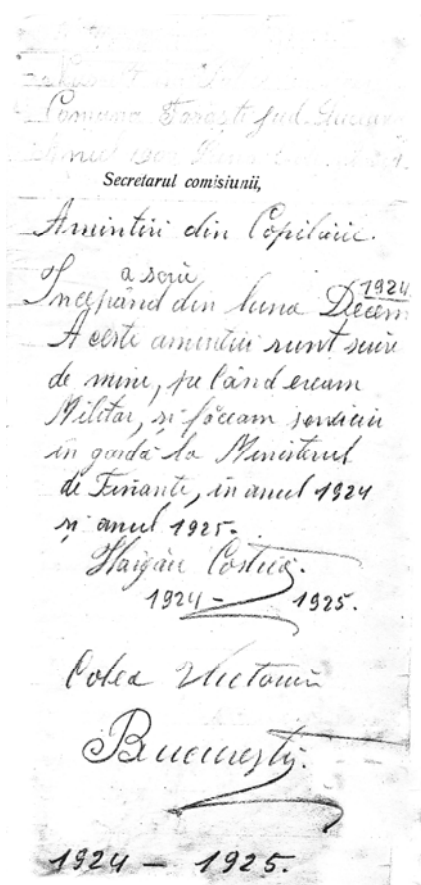 Comuna jud.
anul
Secretarul comisiunii,
Amintiri din Copilărie.
a scrie
1924
Începând din luna Decem
Aceste amintiri sunt scrise
de mine, pe când eream
Militar, și făceam serviciu
în gardă la Ministerul
de Finanțe, în anul 1924
și anul 1925.
Costică.
1924 – 1925.
Calea Victoriei
București.
1924 – 1925.